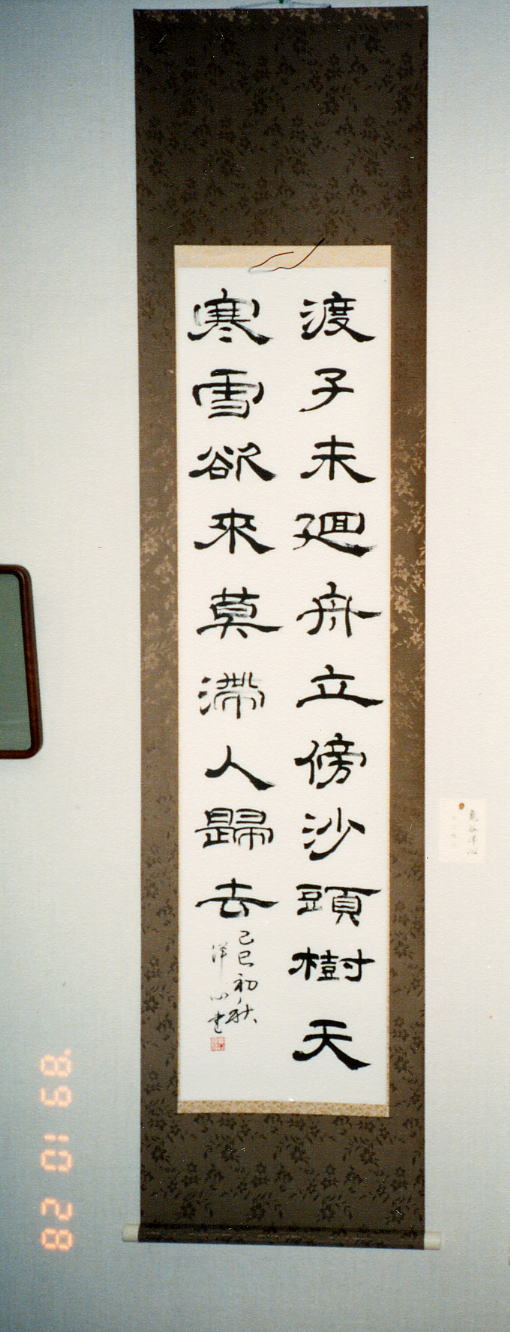 渡子未廻舟立傍沙頭樹天
寒雪欲来莫滞人歸去
己巳初秋
洋心書
'89 10 28